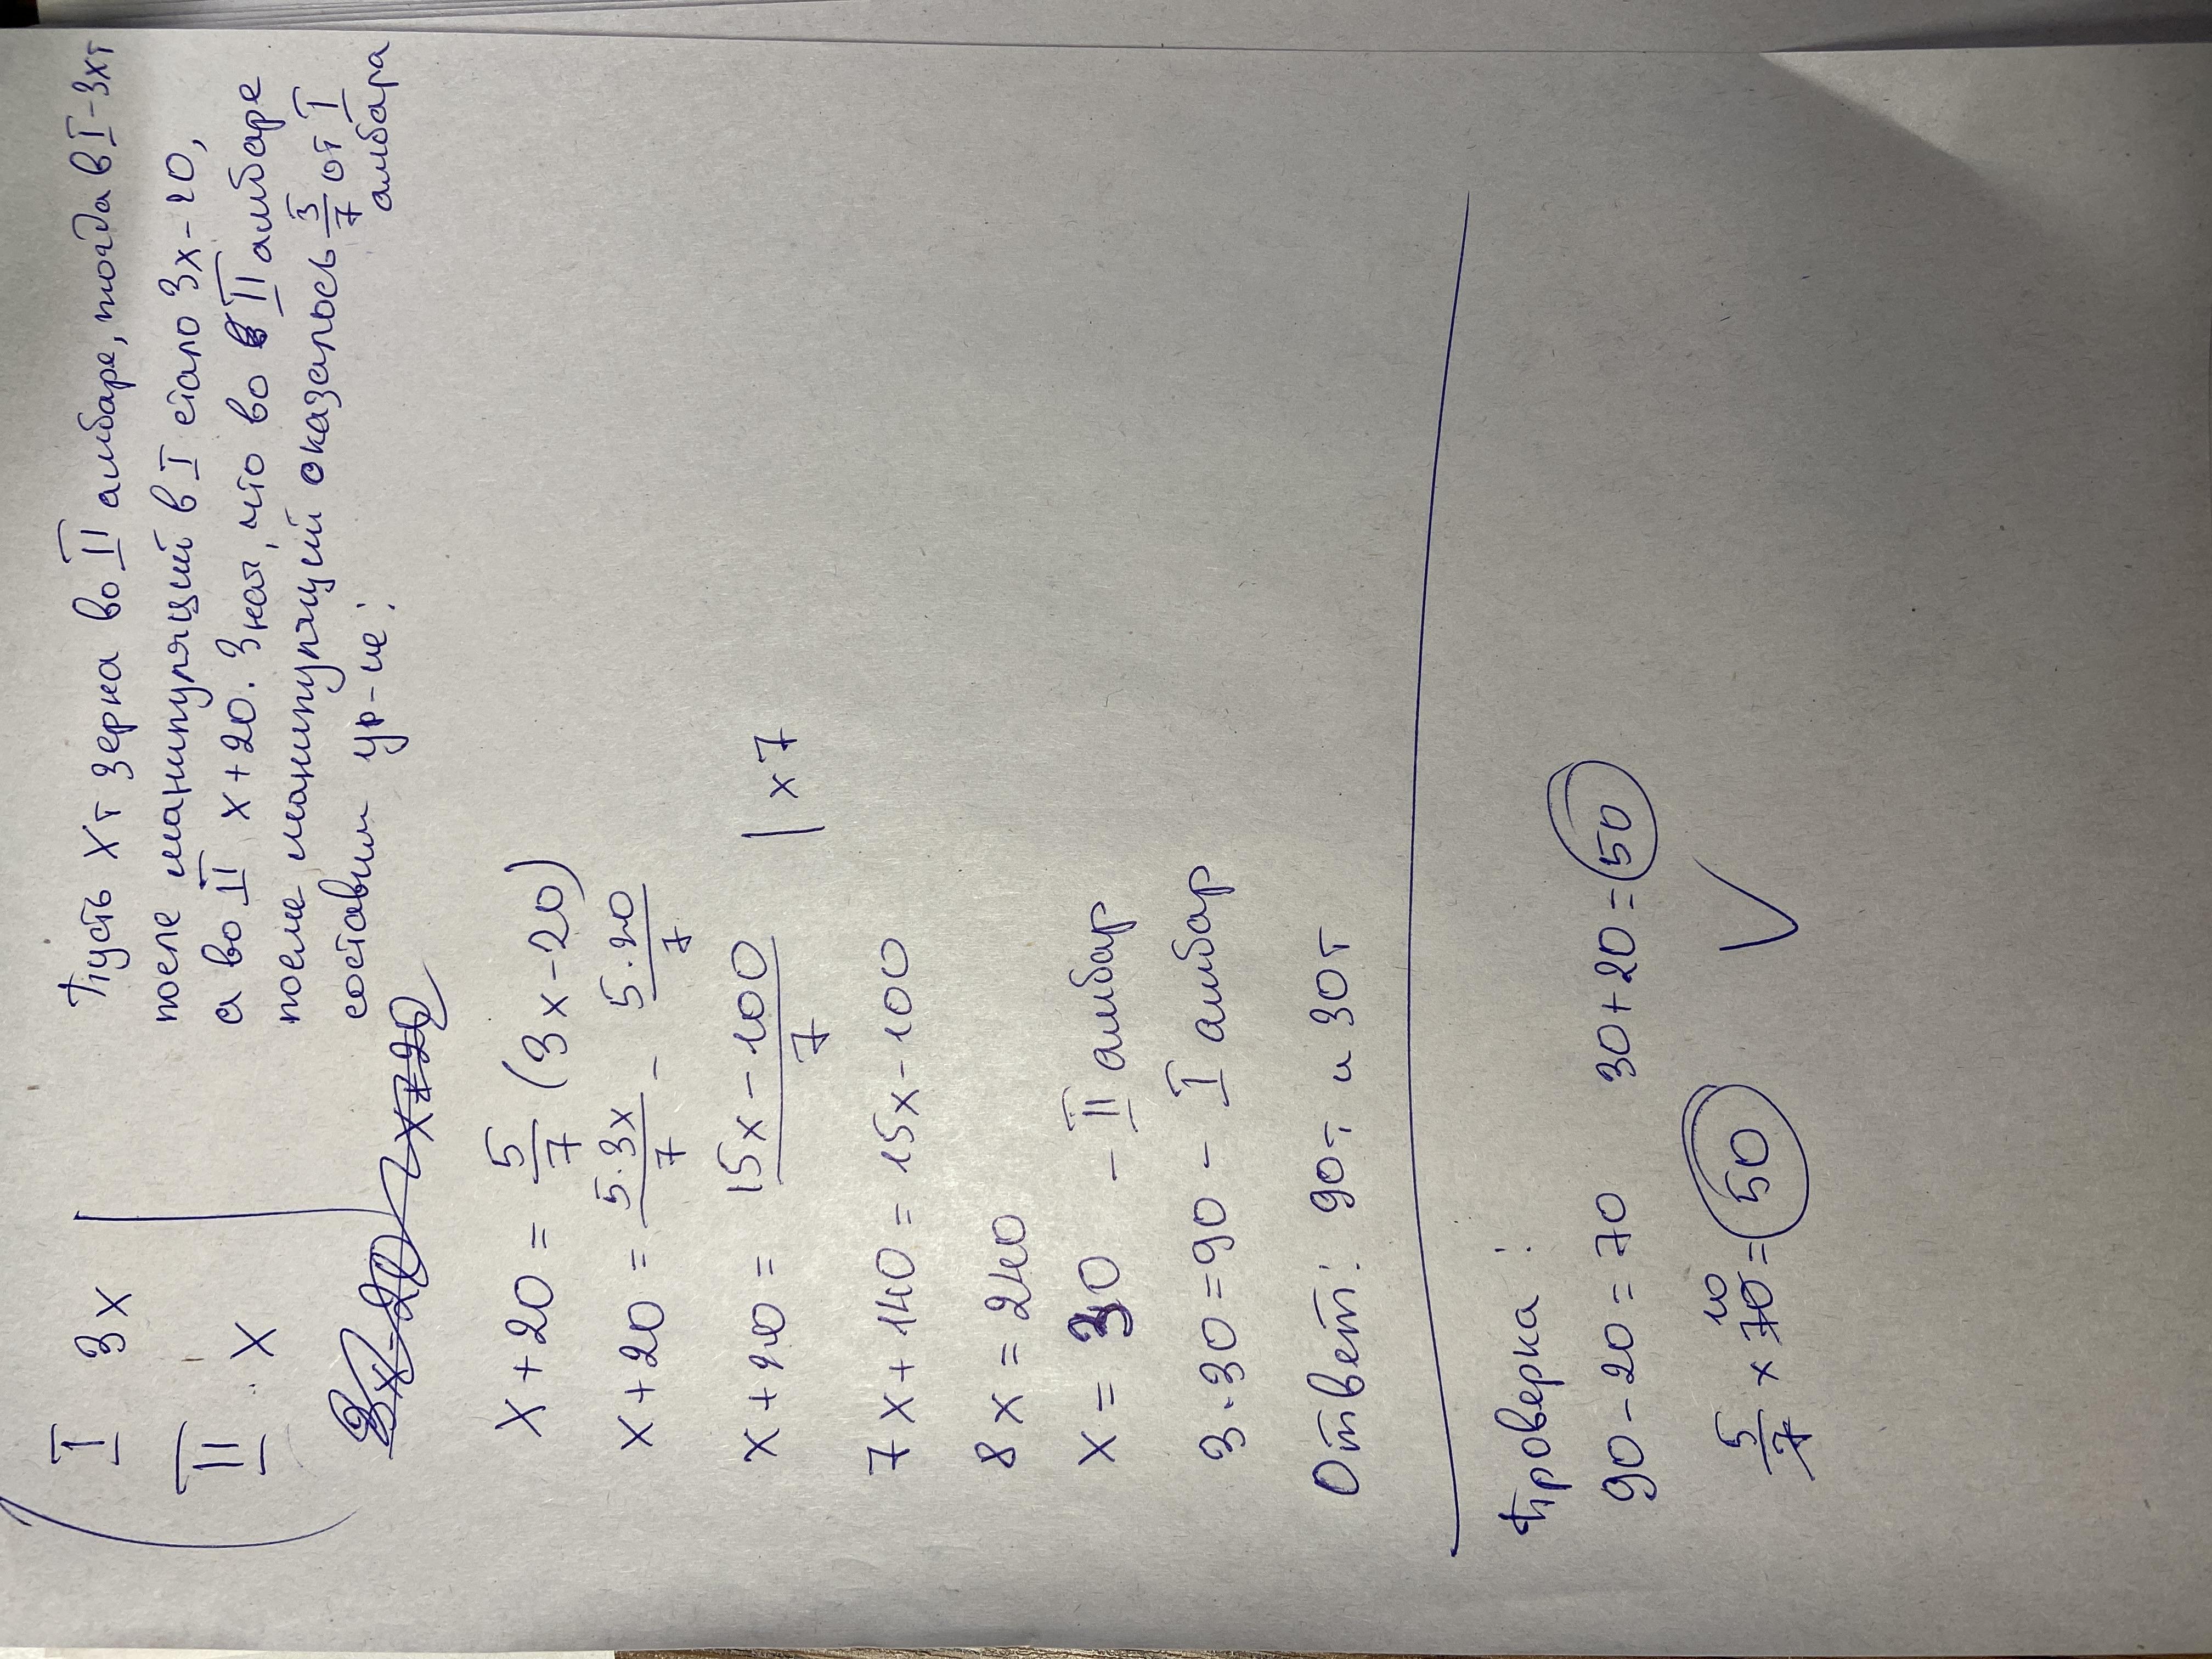 I 3x
II x
Пусть xт зерна во II амбаре, тогда в I - 3xт
после манипуляций в I стало 3x-20,
а во II x+20. Зная, что во II амбаре
после манипуляций оказалось 5/7 от I
амбара
составим ур-ие:
x+20 = 5/7 (3x-20)
x+20 = 5·3x/7 - 5·20/7
x+20 = 15x-100/7 | x7
7x+140 = 15x-100
8x = 240
x = 30 - II амбар
3·30 = 90 - I амбар
Ответ: 90т и 30т
Проверка:
90-20=70 30+20=50
5/7 x 70 10 = 50 ✓